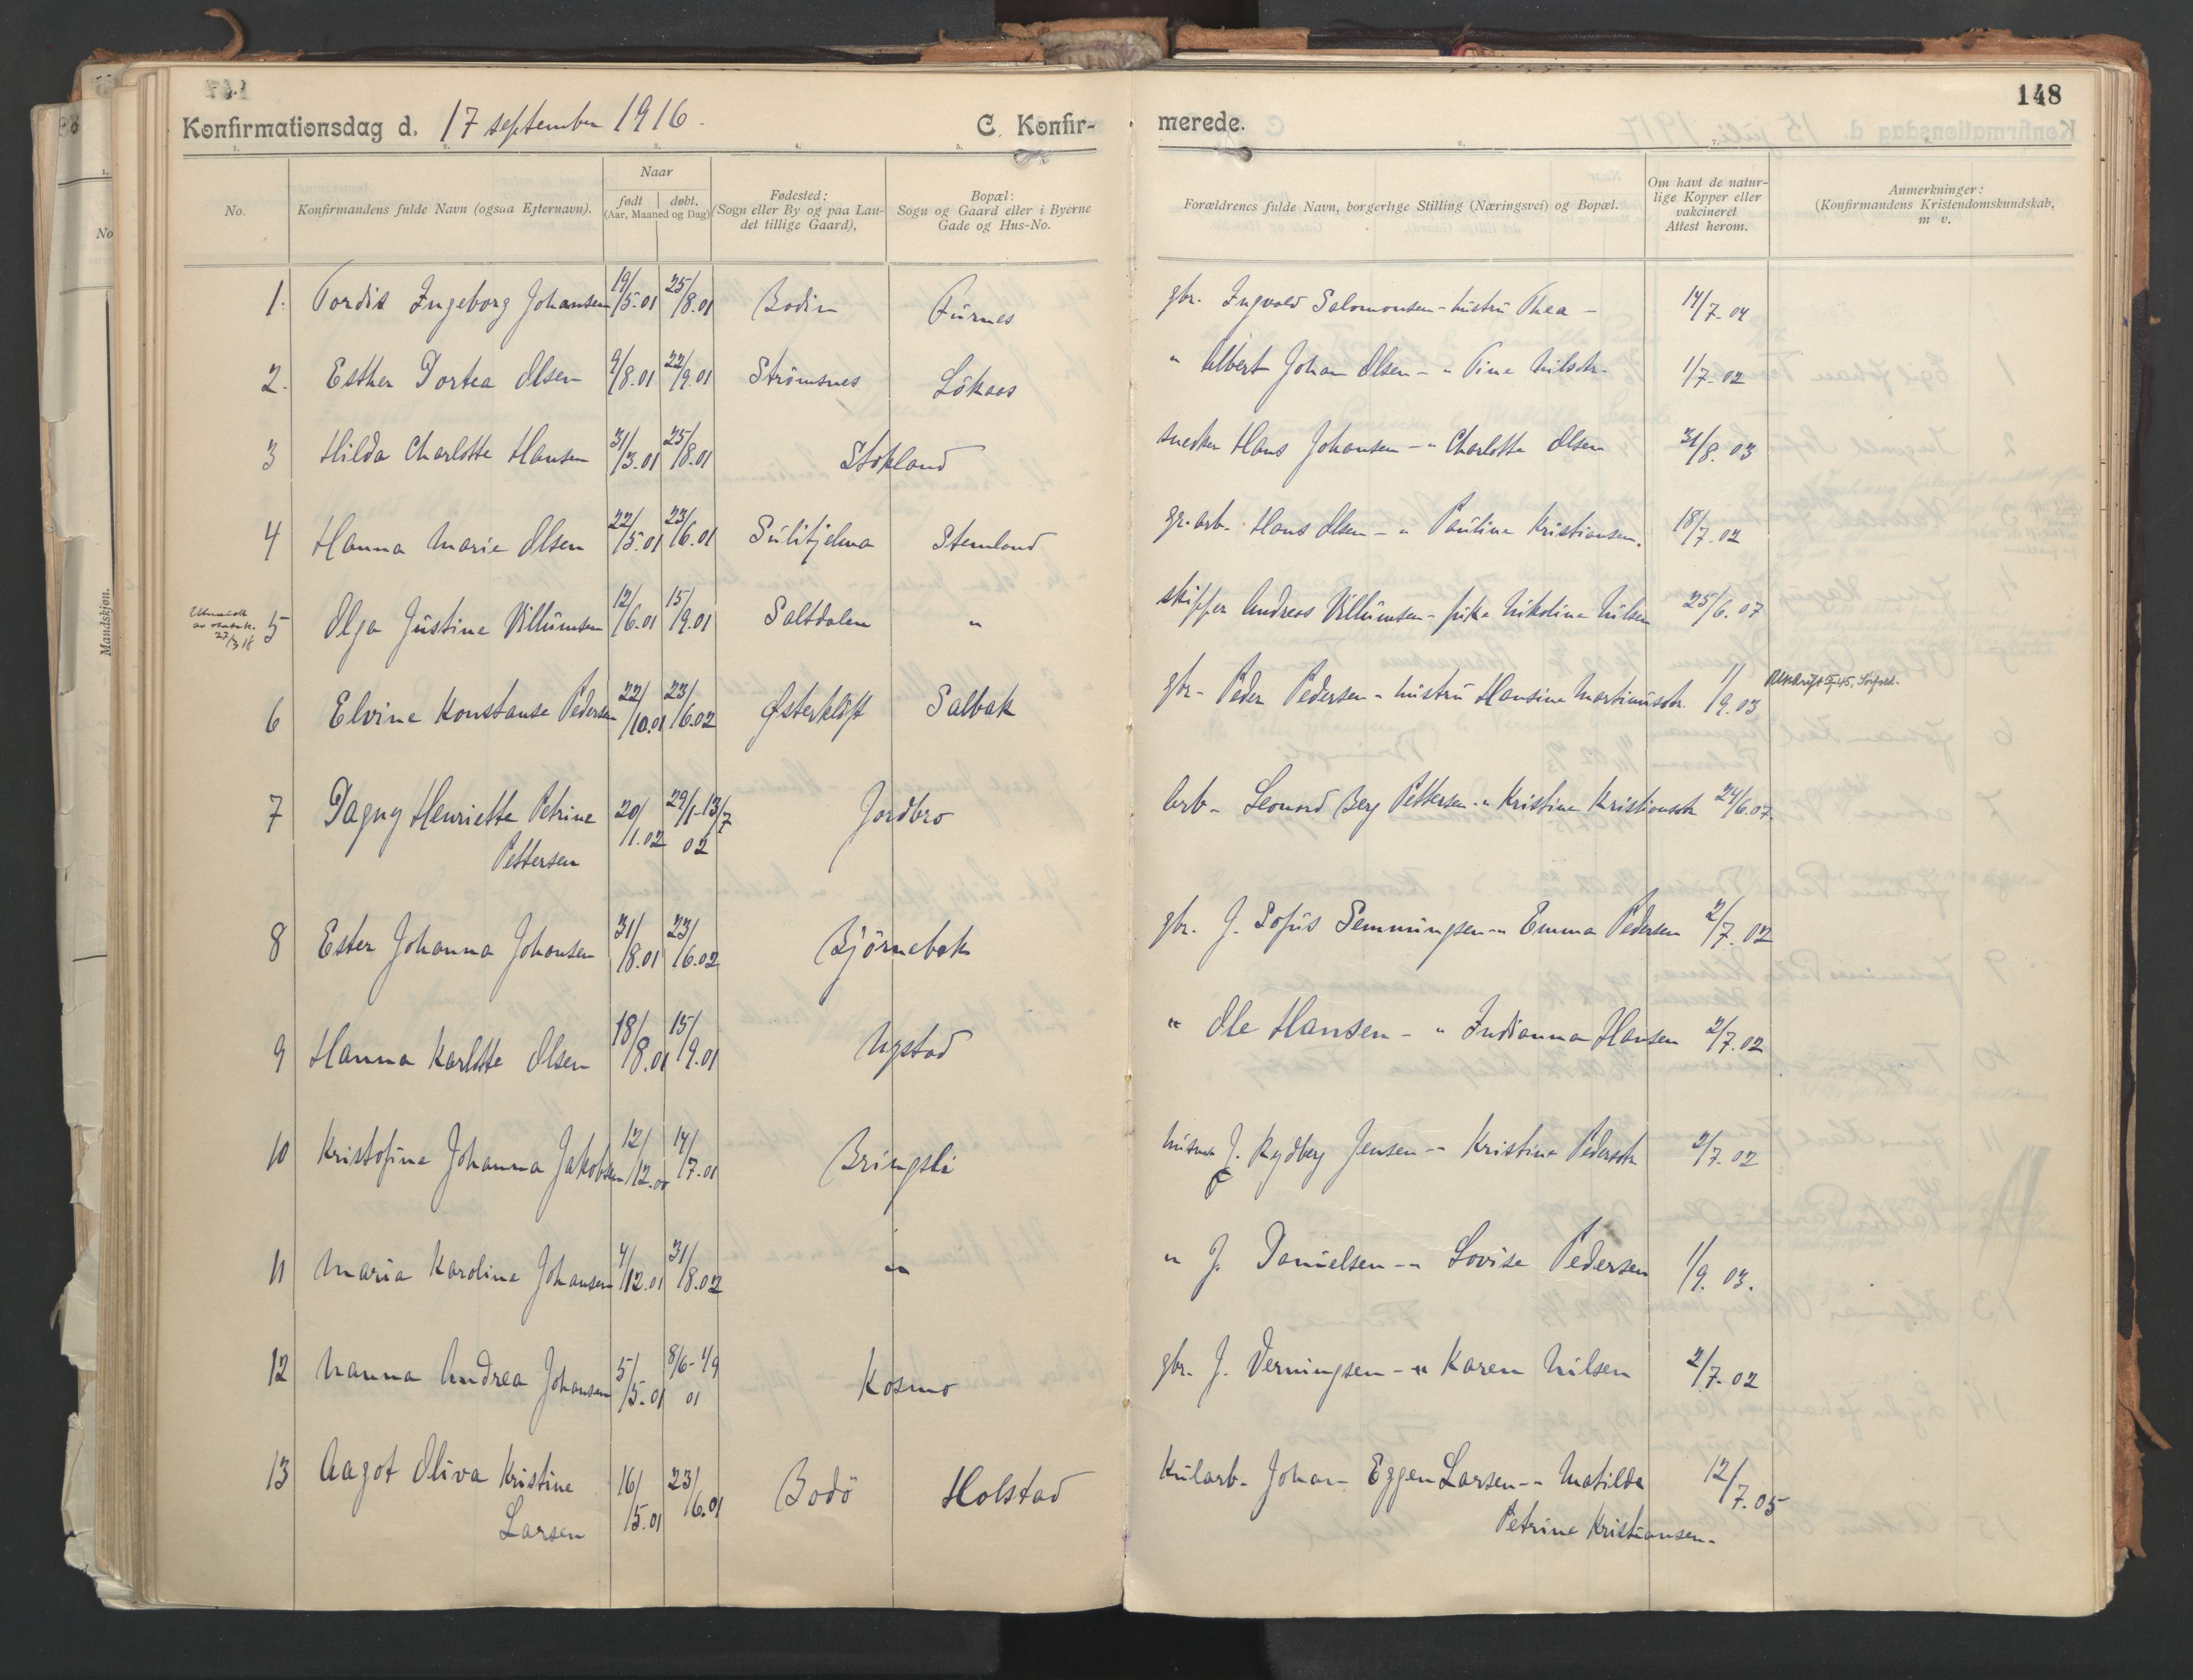 148
Konfirmationsdag d. 17 september 1916. C. Konfir- merede.
1. 2. 3. 4. 5. 6.
No.
Konfirmandens fulde Navn (ogsaa Efternavn).
Naar
født døbt.
(Aar, Maaned og Dag)
Fødested:
(Sogn eller By og paa Lan-
det tillige Gaard),
Bopæl:
Sogn og Gaard eller i Byerne
Gade og Hus-No.
Forældrenes fulde Navn, borgerlige Stilling (Næringsvei) og Bopæl.
Om havt de natur-
lige Kopper eller
vakcineret
Attest herom.
Anmerkninger:
(Konfirmandens Kristendomskundskab,
m v.
1. Tordis Ingeborg Johansen 19/5.01 25/8.01 Bodin Furnes gbr. Ingvald Salomonsen - hustru Thea - 14/7-04
2. Esther Dortea Olsen 9/8.01 22/9.01 Strömsnes Lökaas " Albert Johan Olsen - " Tina Nilsdtr. 1/7-02
3 Hilda Charlotte Hansen 31/3.01 25/8.01 Stokland snedker Hans Johansen - " Charlotte Olsen 31/8.03
4 Hanna Marie Olsen 22/5.01 23/6.01 Sulitjelma Stemland gr.arb. Hans Olsen - " Paulina Kristiansen. 18/7-02
5 Olga Justine Villumsen 12/6.01 15/9.01 Saltdalen " skipper Andreas Villumsen - pike Nikoline Nilsen 25/6.07
6 Elvine Konstanse Pedersen 22/10.01 23/6.02 Østerkløft Salbak gbr - Peder Pedersen - hustru Hansine Martinusdtr. 1/9.03
7 Dagny Henriette Petrine 20/1.02 29/1-13/7 02 Jordbro Arb - Leonard Berg Pettersen - " Kristine Kristiansdtr 24/6.07
Pettersen
8 Ester Johanna Johansen 31/8.01 23/6.02 Björnebak gbr. J. Sofus Semmingsen - " Emma Pedersen 2/7.02
9 Hanna Karlotte Olsen 18/8.01 15/9.01 Nystad " Ole Hansen - " Indianna Hansen 2/7.02
10 Kristofine Johanna Jakobsen 12/12.00 14/7.01 Bringsli husm J. Rydberg Jensen - " Kristine Pedersdtr 2/7-02
11 Maria Karoline Johansen 4/12.01 31/8.02 " " J. Danielsen - " Lovise Pedersen 1/9.03.
12 Nanna Andrea Johansen 5/5.01 8/6-1/9 01 Kosmo gbr. J. Verningsen - " Karen Nilsen 2/7-02
13 Aagot Oliva Kristine 16/5.01 23/6.01 Bodö Holstad Kularb- Johan Eggen Larsen - " Matilda 12/7.05
Larsen Petrine Kristiansen.
Mandskjøn.
No